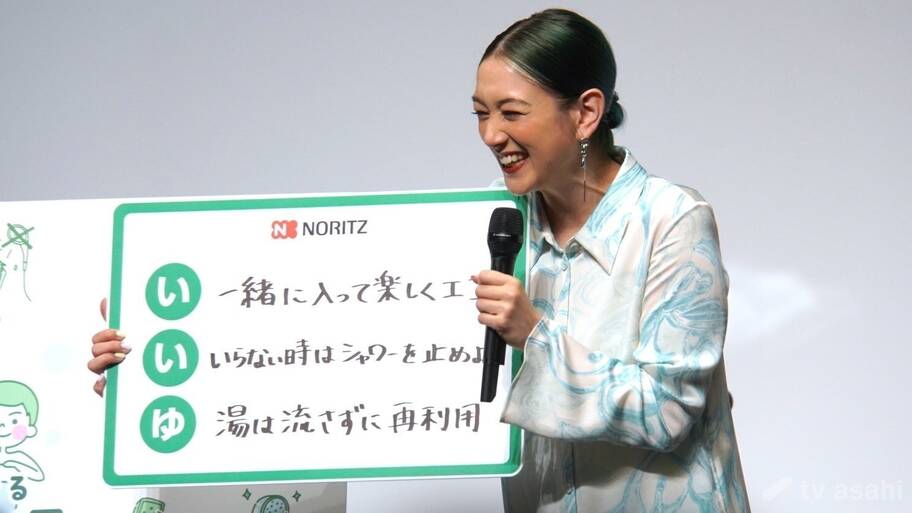 NORITZ
い 一緒に入って楽しくエ
い いらない時はシャワーを止めよ
ゆ 湯は流さずに再利用
る
tv asahi